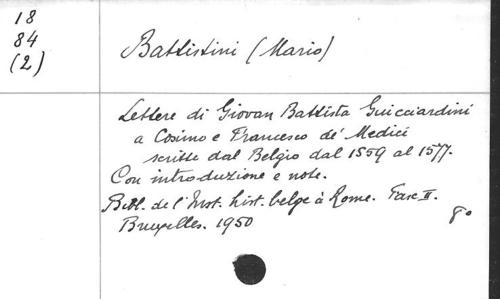 18
84
(2)
Battistini (Mario)
Lettere di Giovan Battista Guicciardini
a Cosimo e Francesco de' Medici
scritte dal Belgio dal 1559 al 1577.
Con introduzione e note.
Bibl. de l'Inst. hist. belge à Rome. Fasc. II.
Bruxelles. 1950
8°